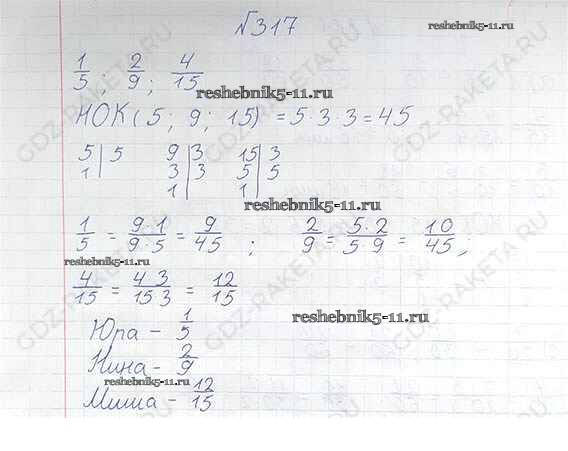 №317
reshebnik5-11.ru
1/5; 2/9; 4/15
reshebnik5-11.ru
НОК(5; 9; 15) = 5·3·3 = 45
5 | 5 9 | 3 15 | 3
1 | 3 | 3 5 | 5
1 | 1 |
reshebnik5-11.ru
1/5 = 9·1/9·5 = 9/45; 2/9 = 5·2/5·9 = 10/45;
reshebnik5-11.ru
4/15 = 4·3/15·3 = 12/15
Юра - 1/5
reshebnik5-11.ru
Нина - 2/9
reshebnik5-11.ru
Миша - 12/15
GDZ-RAKETA.RU